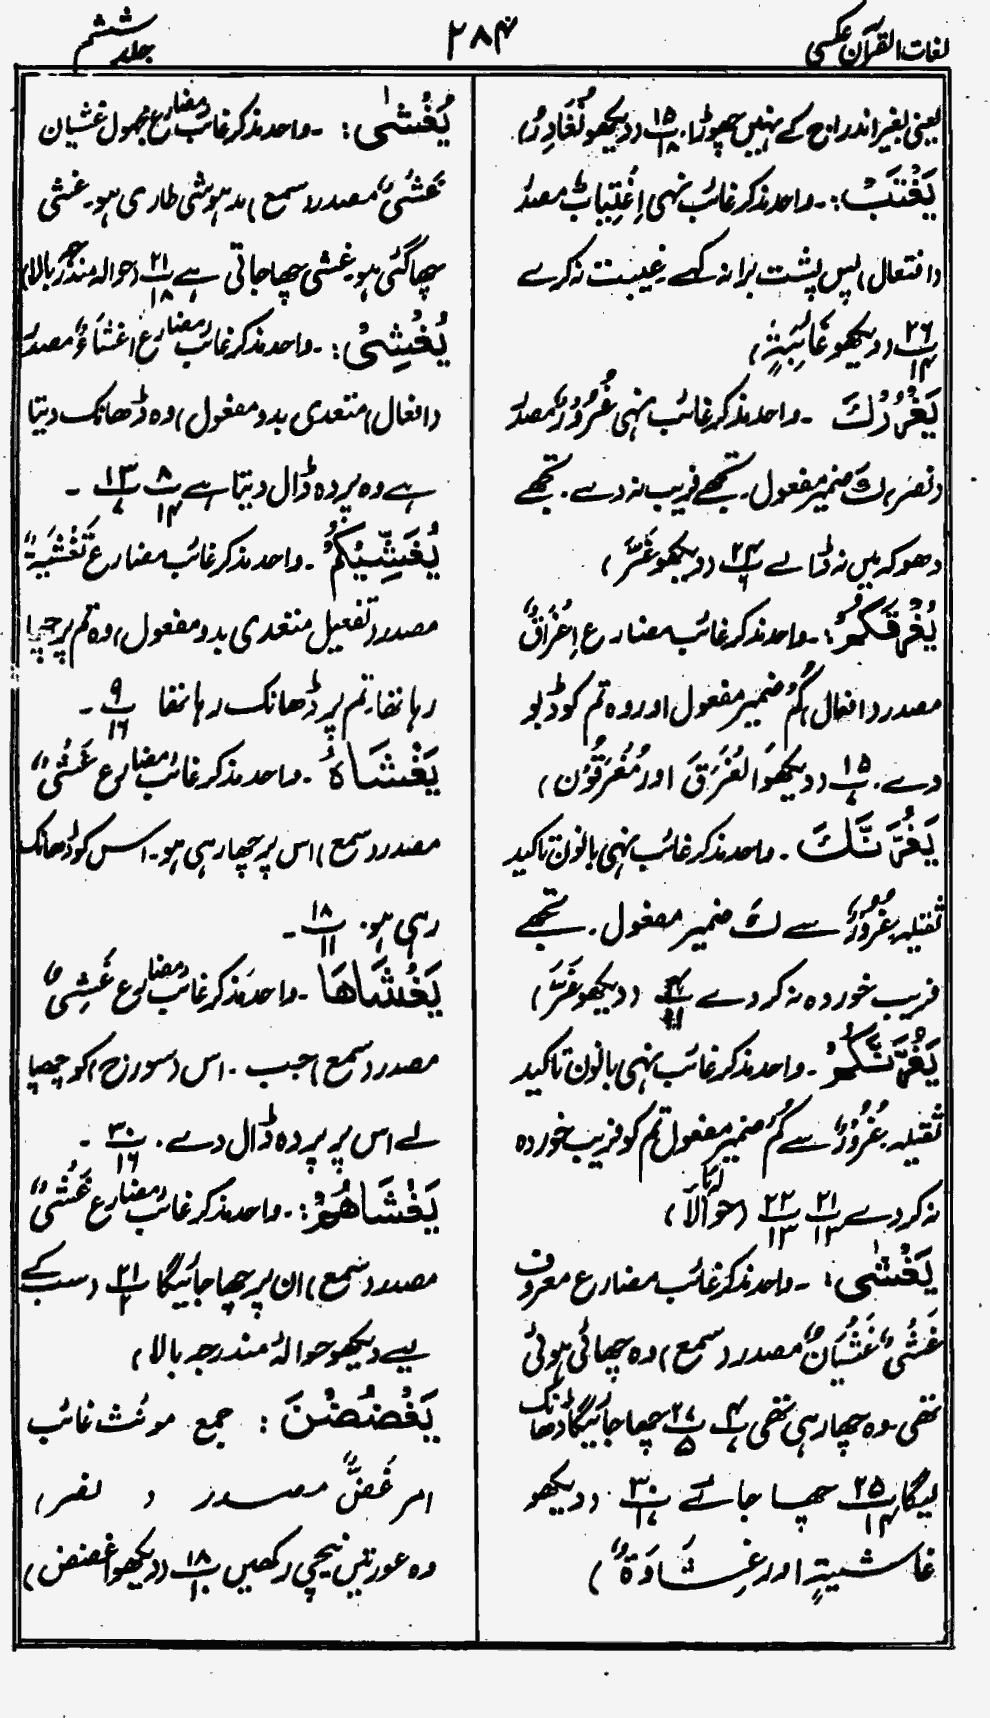 لغات القرآن عکسی
۲۸۴
جلد ششم
یعنی بغیر اندراج کے نہیں چھوڑا. پ۱۵/۱۸ (دیکھو نُغَادِرُ)
یَغْتَبْ:۔ واحد مذکر غائب نہی اِغْتِیَابٌ مصدر
(افتعال) پس پشت برا نہ کہے۔ غیبت نہ کرے
پ۲۶/۱۴ (دیکھو غَائِبَةٍ)
یَغْرُرْكَ ۔ واحد مذکر غائب نہی غُرُوْرٌ مصدر
(نصر) كَ ضمیر مفعول۔ تجھے فریب نہ دے. تجھے
دھوکہ میں نہ ڈالے پ۲۴/۶ (دیکھو غَرَّ)
یُغْرِقَكُمْ:۔ واحد مذکر غائب مضارع اِغْرَاقٌ
مصدر (افعال) كُمْ ضمیر مفعول اور وہ تم کو ڈبو
دے. پ۱۵/۷ (دیکھو الغَرَقَ اور مُغْرَقُوْن)
یَغُرَّنَّكَ ۔ واحد مذکر غائب نہی بانون تاکید
ثقیلہ، غُرُوْرٌ مصدر سے كَ ضمیر مفعول. تجھے
فریب خوردہ نہ کر دے (دیکھو غَرَّ)
یَغُرَّنَّكُمْ ۔ واحد مذکر غائب نہی بانون تاکید
ثقیلہ۔ غُرُوْرٌ سے كُمْ ضمیر مفعول تم کو فریب خوردہ
نہ کر دے پ۲۱/۱۳ پ۲۲/۱۳ (حوالہ بالا)
یَغْشٰی: ۔ واحد مذکر غائب مضارع معروف
غَشْیٌ غَشَیَانٌ مصدر (سمع) وہ چھائی ہوئی
تھی۔ وہ چھا رہی تھی پ۴/۷ پ۲۷/۵ چھا جائیگا ڈھانک
لیگا پ۲۵/۱۴ چھا جائے پ۳۰/۱۷ (دیکھو
غاشیةٍ اور غِشَاوَةٌ)
یُغْشٰی: ۔ واحد مذکر غائب مضارع مجہول غشیان
غَشْیٌ مصدر (سمع) مدہوشی طاری ہو۔ غشی
چھا گئی ہو۔ غشی چھا جاتی ہے پ۲۱/۱۸ (حوالہ مندرجہ بالا)
یُغْشِیْ:۔ واحد مذکر غائب مضارع اغشاءٌ مصدر
(افعال) متعدی بدو مفعول) وہ ڈھانک دیتا
ہے وہ پردہ ڈال دیتا ہے پ۸/۱۴ پ۱۳/۷ ۔
یُغَشِّیْكُمْ ۔ واحد مذکر غائب مضارع تَغْشِیَةٌ
مصدر (تفعیل متعدی بدو مفعول) وہ تم پر چھا
رہا تھا۔ تم پر ڈھانک رہا تھا پ۹/۱۶ ۔
یَغْشَاهُ ۔ واحد مذکر غائب مضارع غَشْیٌ
مصدر (سمع) اس پر چھا رہی ہو۔ اس کو ڈھانک
رہی ہو. پ۱۸/۱۱ ۔
یَغْشَاهَا ۔ واحد مذکر غائب مضارع غَشِیٌ
مصدر (سمع) جب. اس (سورج) کو چھپا
لے اس پر پردہ ڈال دے. پ۳۰/۱۶ ۔
یَغْشَاهُمْ:۔ واحد مذکر غائب مضارع غَشْیٌ
مصدر (سمع) ان پر چھا جائیگا پ۲۱/۲ (سب کے
لیے دیکھو حوالۂ مندرجہ بالا)
یَغْضُضْنَ : جمع مونث غائب
امر غَضٌّ مصدر (نصر)
وہ عورتیں نیچی رکھیں پ۱۸/۱۰ (دیکھو اغضض)